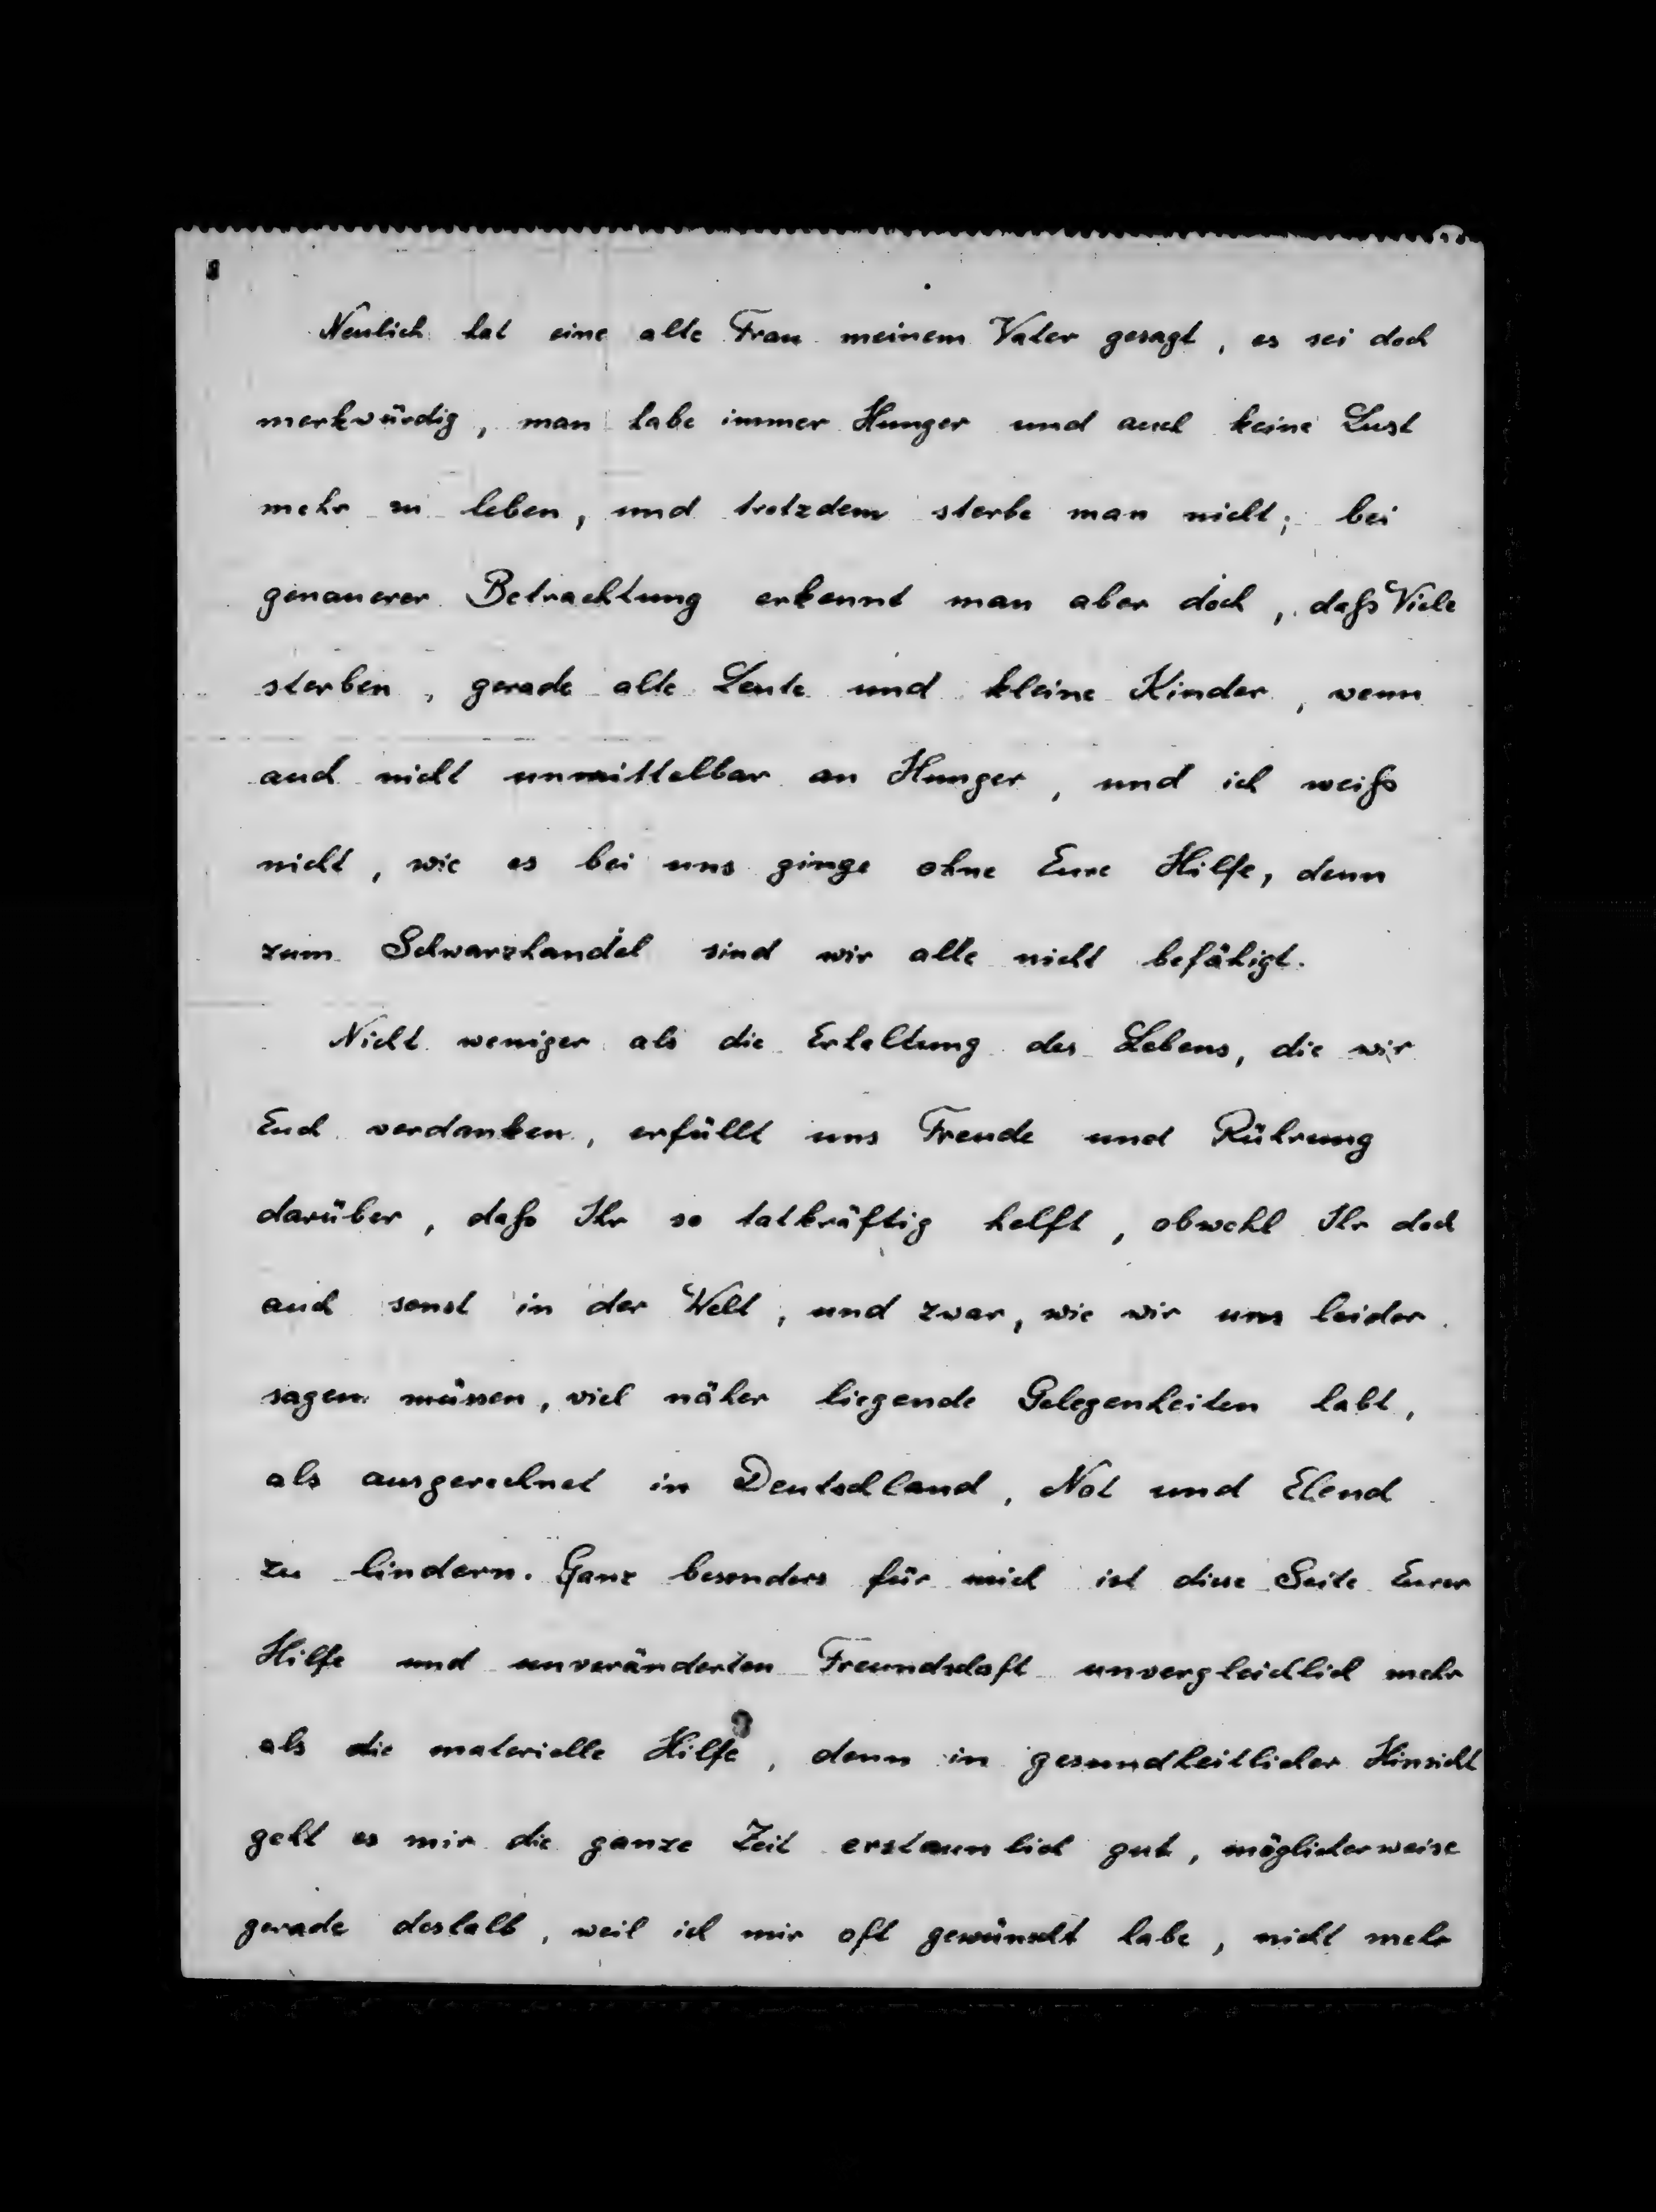 Neulich hat eine alte Frau meinem Vater gesagt, es sei doch
merkwürdig, man habe immer Hunger und auch keine Lust
mehr zu leben, und trotzdem sterbe man nicht; bei
genauerer Betrachtung erkennt man aber doch, daß Viele
sterben, gerade alte Leute und kleine Kinder, wenn
auch nicht unmittelbar an Hunger, und ich weiß
nicht, wie es bei uns ginge ohne Eure Hilfe, denn
zum Schwarzhandel sind wir alle nicht befähigt.
Nicht weniger als die Erhaltung des Lebens, die wir
Euch verdanken, erfüllt uns Freude und Rührung
darüber, daß Ihr so tatkräftig helft, obwohl Ihr doch
auch sonst in der Welt, und zwar, wie wir uns leider
sagen müssen, viel näher liegende Gelegenheiten habt,
als ausgerechnet in Deutschland, Not und Elend
zu lindern. Ganz besonders für mich ist diese Seite Eurer
Hilfe und unveränderten Freundschaft unvergleichlich mehr
als die materielle Hilfe, denn in gesundheitlicher Hinsicht
geht es mir die ganze Zeit erstaunlich gut, möglicherweise
gerade deshalb, weil ich mir oft gewünscht habe, nicht mehr